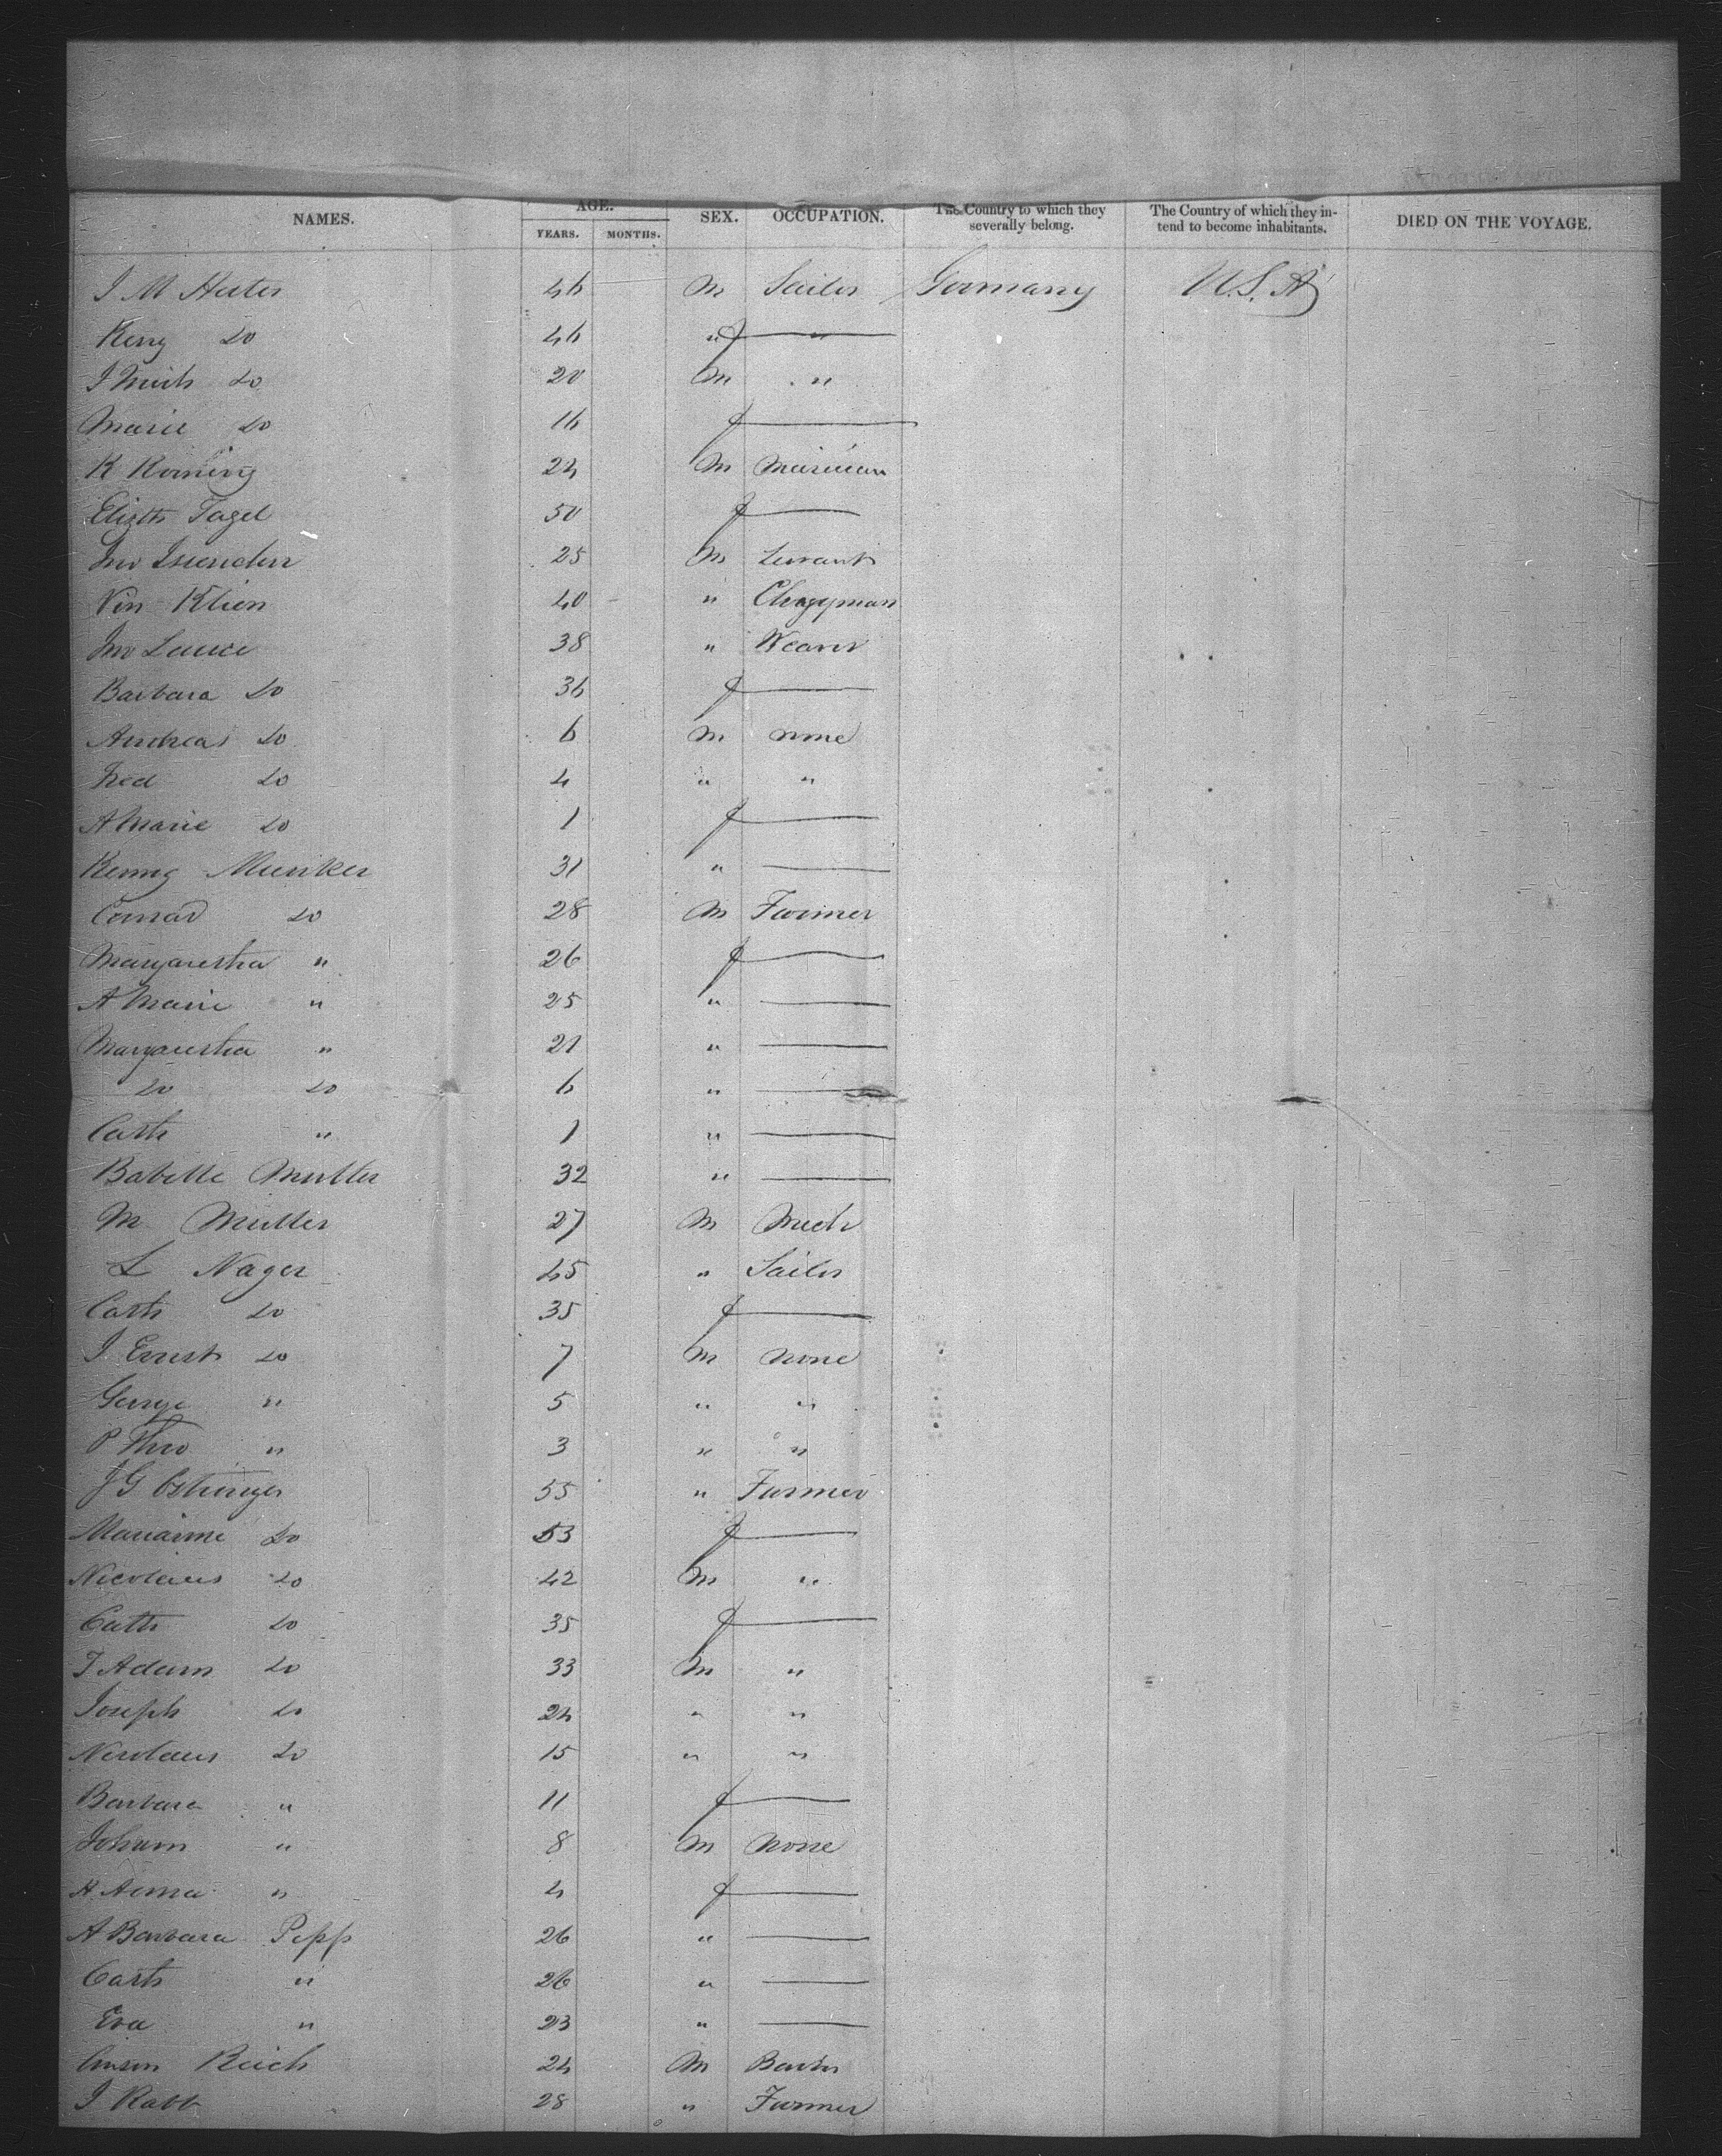 NAMES. AGE. SEX. OCCUPATION. The Country to which they severally belong. The Country of which they intend to become inhabitants. DIED ON THE VOYAGE.
YEARS. MONTHS.
J M 46 M Germany U.S.A
Do 46 " f "
Do 20 M "
Marie Do 16 f
K 24 M Musician
Elizth 50 f
Jno 25 M Servant
Vin Klien 40 " Clergyman
Jno 38 " Weaver
Barbara Do 36 f
Andreas Do 6 M none
Fred Do 4 " "
A Marie Do 1 f
Munker 31 "
Conrad Do 28 M Farmer
Margaretha " 26 f
A Marie " 25 "
Margaretha " 21 "
Do Do 6 "
Cath " 1 "
Babette Muller 32 "
M Muller 27 M Mech
L Nager 45 "
Cath Do 35 f
J Ernst Do 7 M none
George " 5 " "
P Theo " 3 " "
J G 55 " Farmer
Marianne Do 53 f
Nicolaus Do 42 M "
Cath Do 35 f
J Adam Do 33 M "
Joseph Do 24 " "
Nicolaus Do 15 " "
Barbara " 11 f
Johann " 8 M None
" 4 f
A Barbara Popp 26 "
Cath " 26 "
Eva " 23 "
Reich 24 M
J Rabb 28 " Farmer